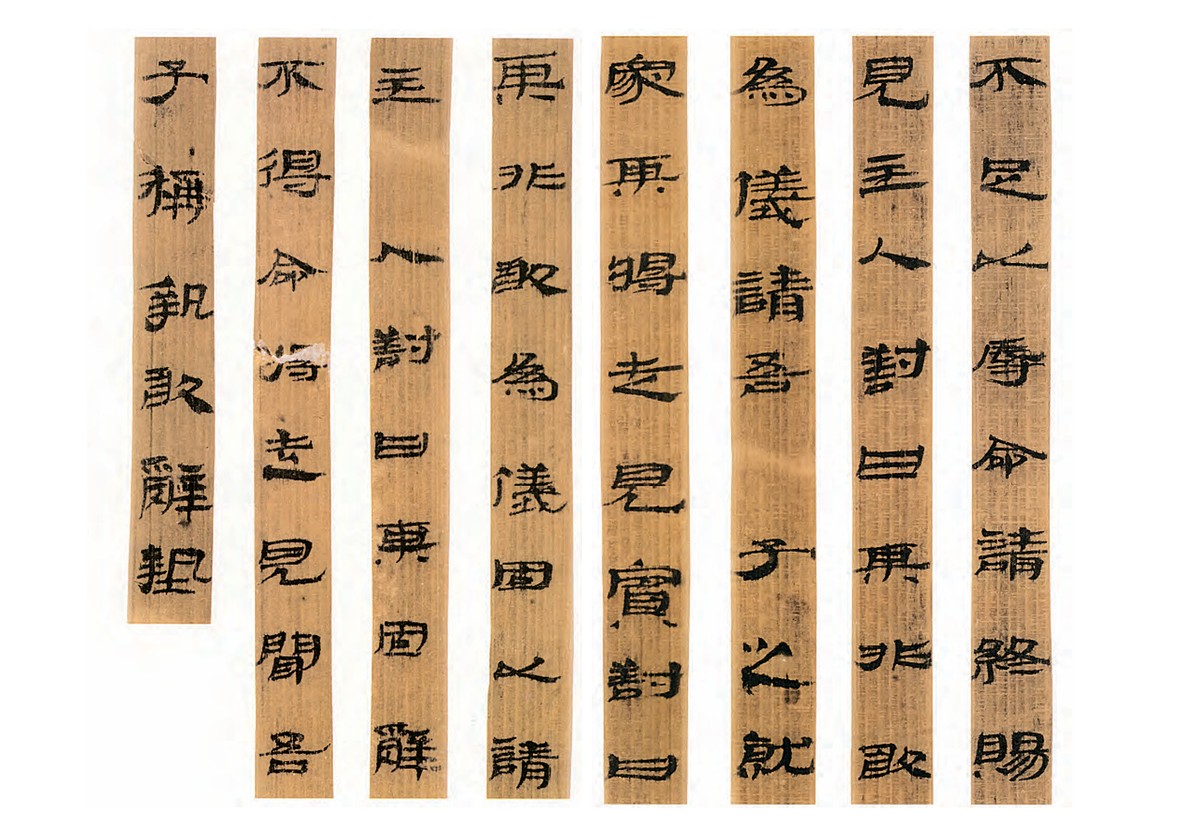 不足以辱命請終賜
見主人對曰某非敢
為儀請吾子之就
家某將走見賓對曰
某非敢為儀固以請
主人對曰某固辭
不得命將走見聞吾
子稱摯敢辭摯